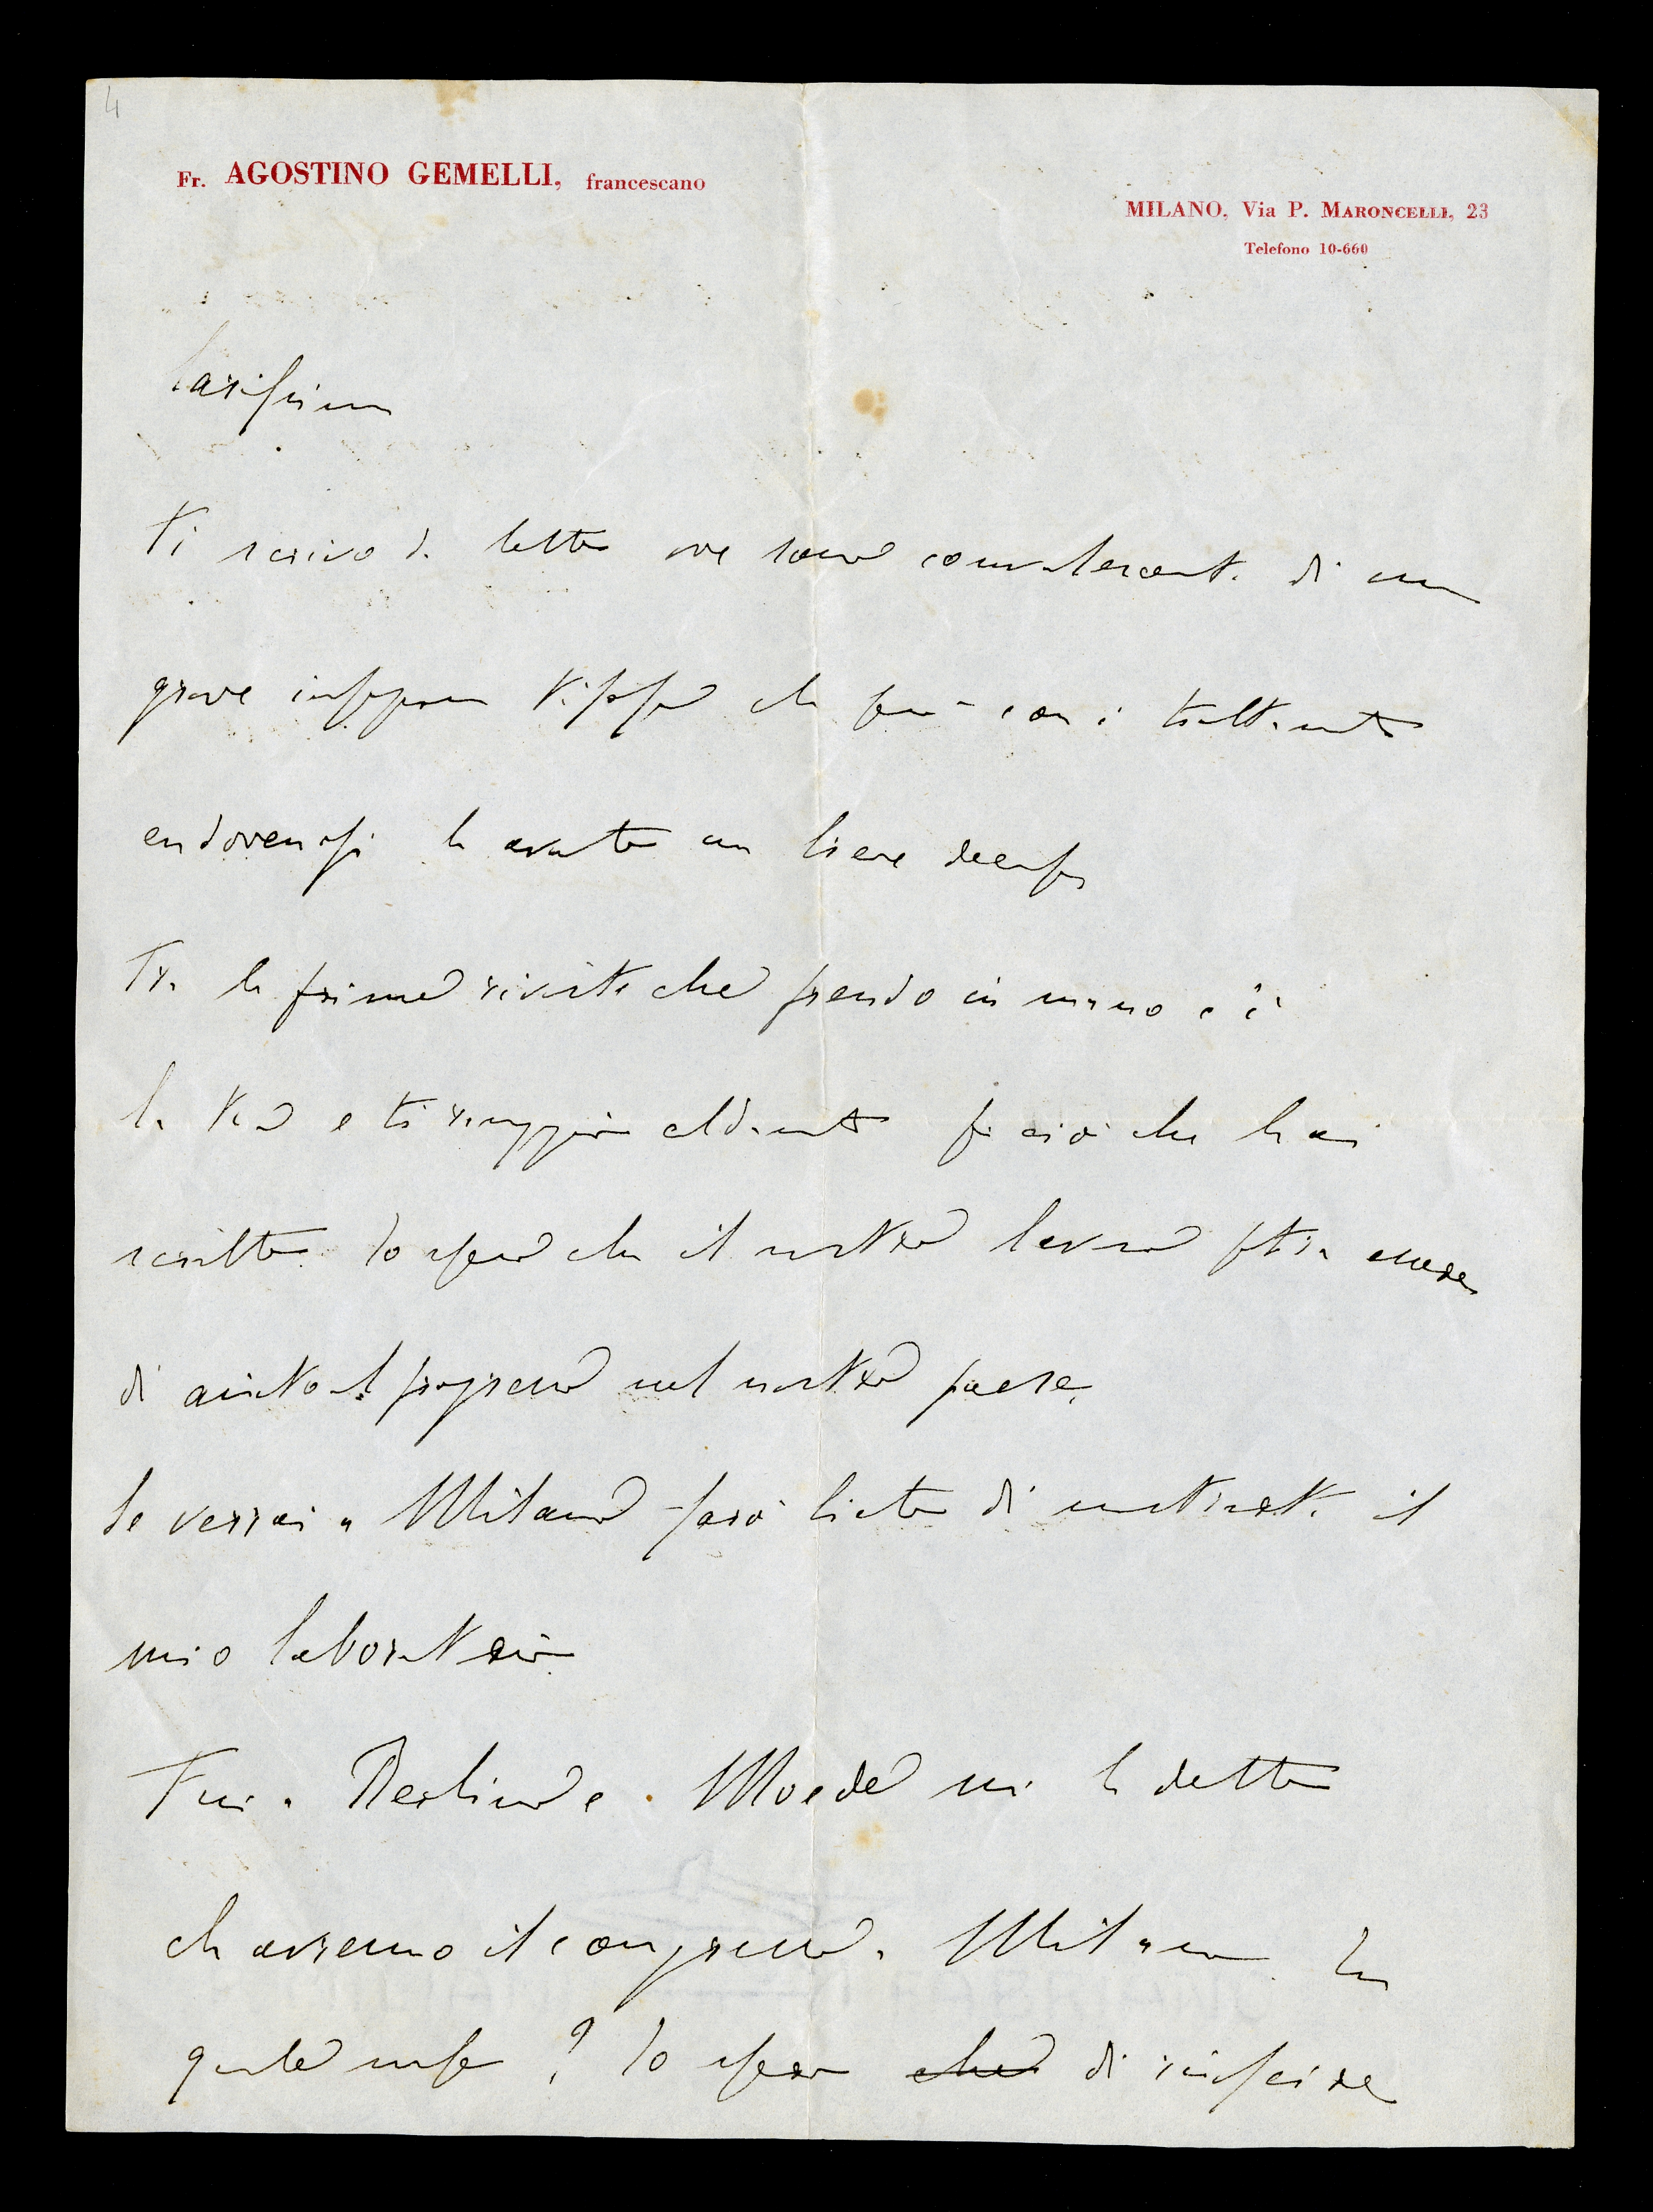 4
Fr. AGOSTINO GEMELLI, francescano
MILANO, Via P. MARONCELLI, 23
Telefono 10-660
Carissimo
Ti scrivo da letto ove sono convalescente di una
grave infezione tifosa che però con i trattamenti
endovenosi ha avuto un lieve decorso
Tra le prime riviste che prendo in mano c'è
la tua e ti ringrazio caldamente per ciò che hai
scritto. Io spero che il nostro lavoro potrà essere
di aiuto al progresso nel nostro paese.
Se verrai a Milano sarò lieto di mostrarti il
mio laboratorio.
Fui a Berlino e Moede mi ha detto
che avremo il congresso a Milano. In
quale mese? Io spero che di riuscire